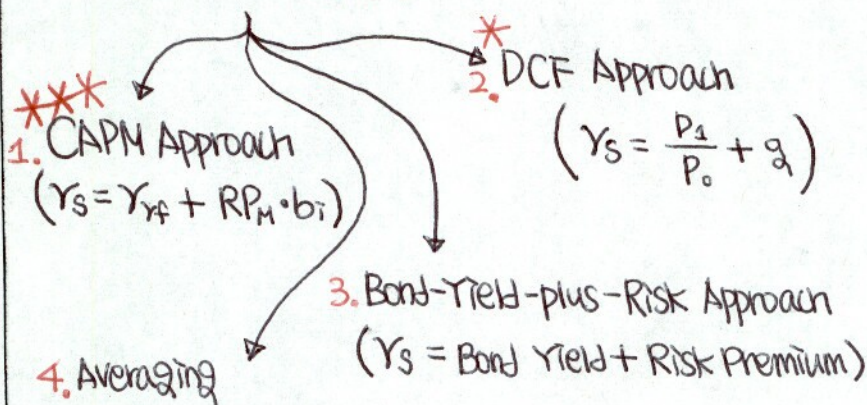 ***
1. CAPM Approach
(rs = rrf + RPM·bi)
*
2. DCF Approach
(rs = P1/P0 + g)
3. Bond-Yield-plus-Risk Approach
(rs = Bond Yield + Risk Premium)
4. Averaging